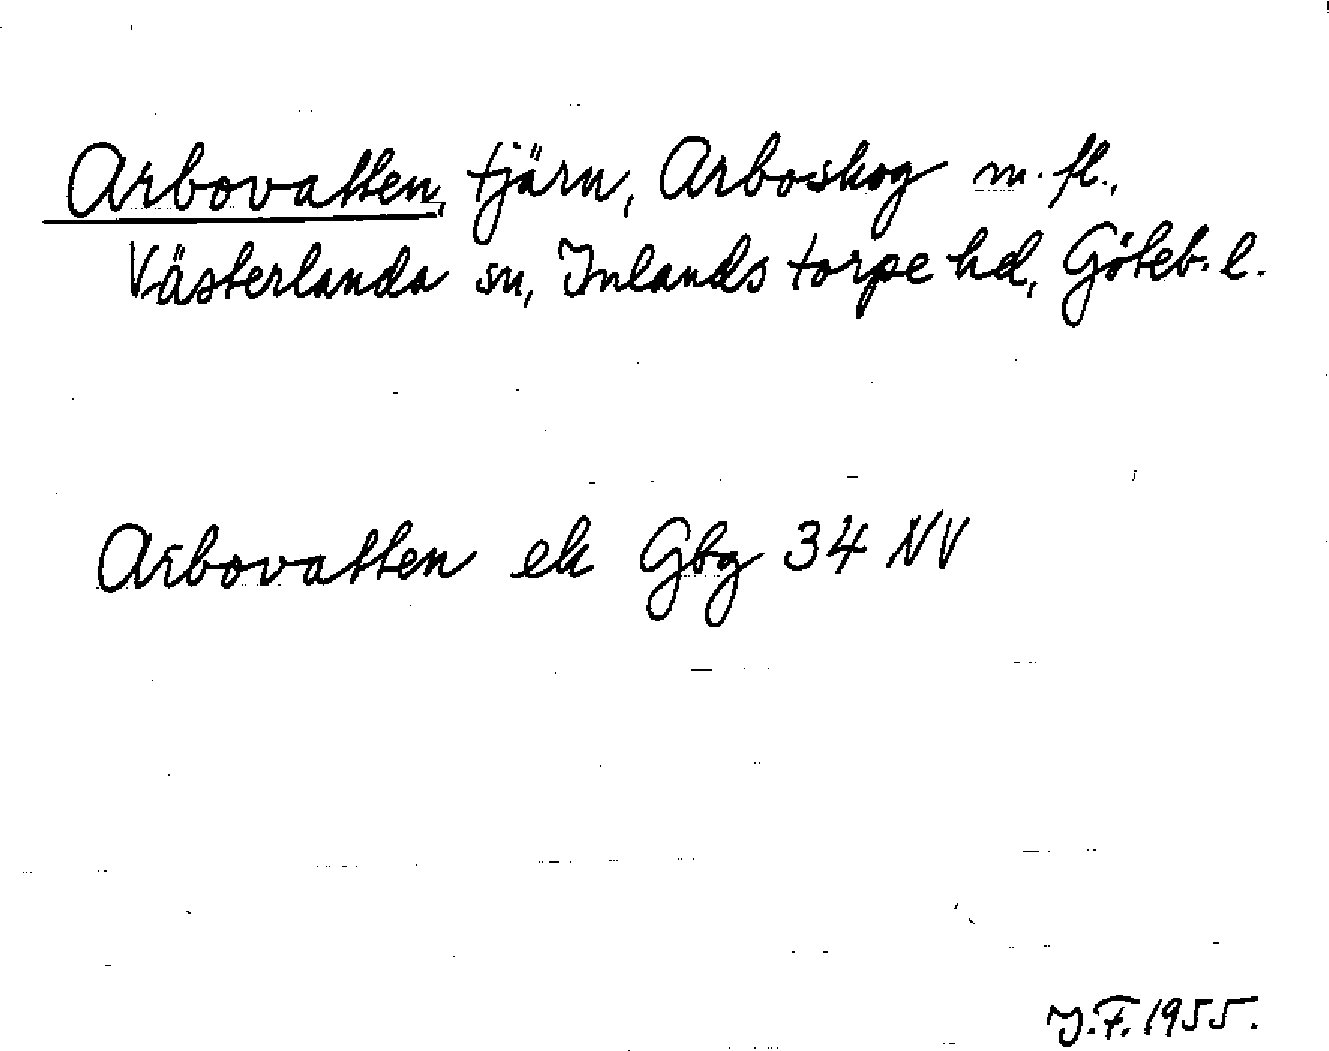 Arbovatten, tjärn, Arboskog m. fl.,
Västerlanda sn, Inlands torpe hd, Göteb. l.
Arbovatten ek Gbg 34 NV
J.F. 1955.